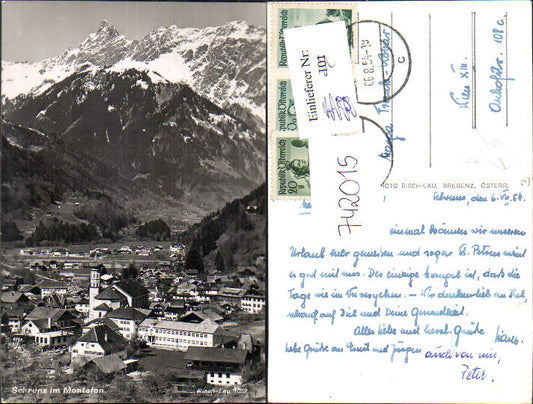 Schruns im Montafon
Risch-Lau 1002
Republik Österreich
Republik Österreich
Republik Österreich
20
Einlieferer Nr.
101
742015
6.8.54
Wien XIII.
Auhofstr. 108c
FOTO RISCH-LAU, BREGENZ, ÖSTERR.
Schruns, den 6. VIII. 54.
einmal können wir unseren
Urlaub hier genießen und sogar St. Petrus meint
es gut mit uns. Der einzige Mangel ist, dass die
Tage wie im Flu vergehen. – Wir denken lieb an Dich,
schau auf Dich und Deine Gesundheit.
Alles Liebe und herzl. Grüße
liebe Grüße an Emil und Jürgen auch von mir,
Peter.